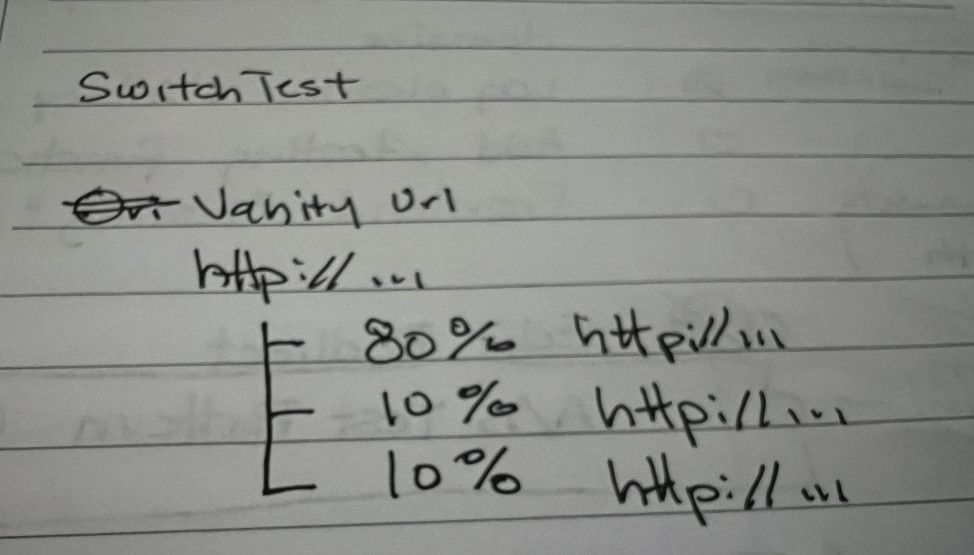 Switch Test
Vanity Url
http://...
80% http://...
10% http://...
10% http://...